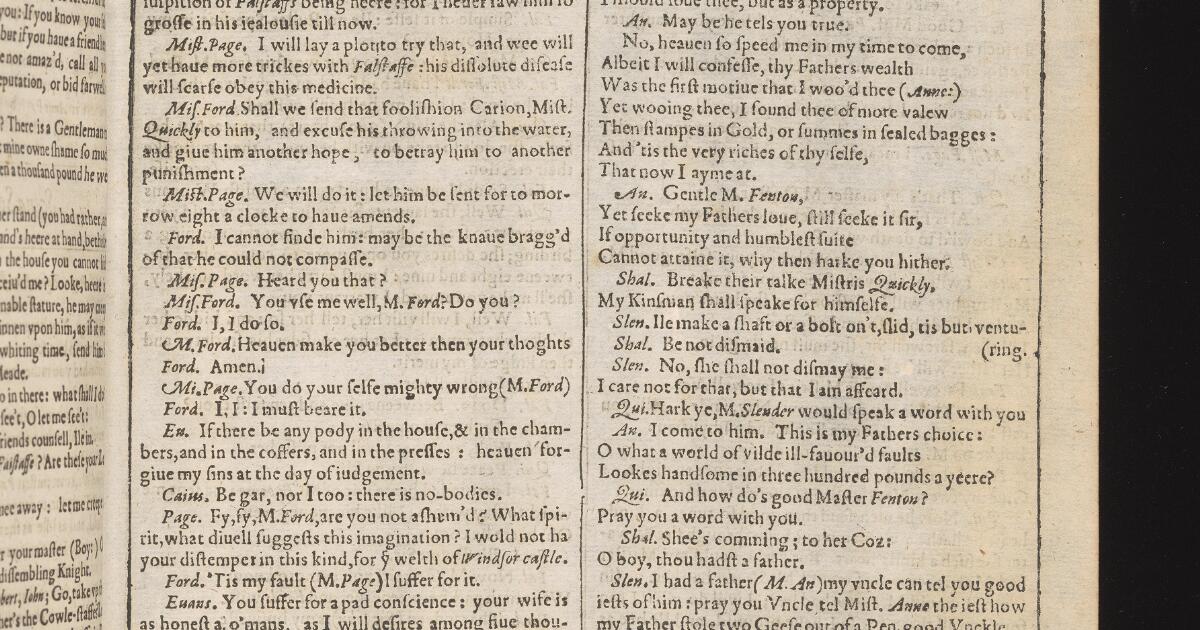 you: If you know your
but if you haue a friend
e not amaz'd, call all
putation, or bid farwel
? There is a Gentleman
mine owne shame so muc
en a thousand pound he we
er stand (you had rather,
and's heere at hand, beth
the house you cannot
ceiu'd me? Looke, heere
nable stature, he may
innen vpon him, as if it
whiting time, send him
Meade.
o in there: what shall I do
see't, O let me see't:
riends counsell, Ile in.
Falstaffe? Are these your Le
nee away: let me creepe
r your master (Boy:)
dissembling Knight.
bert, Iohn; Go, take vp
her's the Cowle-staffe
suspition of Falstaffs being heere: for I neuer saw him so
grosse in his iealousie till now.
Mist.Page. I will lay a plot to try that, and wee will
yet haue more trickes with Falstaffe: his dissolute disease
will scarse obey this medicine.
Mis.Ford. Shall we send that foolishion Carion, Mist.
Quickly to him, and excuse his throwing into the water,
and giue him another hope, to betray him to another
punishment?
Mist.Page. We will do it: let him be sent for to mor-
row eight a clocke to haue amends.
Ford. I cannot finde him: may be the knaue bragg'd
of that he could not compasse.
Mis.Page. Heard you that?
Mis.Ford. You vse me well, M. Ford? Do you?
Ford. I, I do so.
M.Ford. Heauen make you better then your thoghts
Ford. Amen.
Mi.Page. You do your selfe mighty wrong (M.Ford)
Ford. I, I: I must beare it.
Eu. If there be any pody in the house, & in the cham-
bers, and in the coffers, and in the presses: heauen for-
giue my sins at the day of iudgement.
Caius. Be gar, nor I too: there is no-bodies.
Page. Fy, fy, M.Ford, are you not asham'd? What spi-
rit, what diuell suggests this imagination? I wold not ha
your distemper in this kind, for yͤ welth of Windsor castle.
Ford. 'Tis my fault (M.Page) I suffer for it.
Euans. You suffer for a pad conscience: your wife is
as honest a o'mans, as I will desires among fiue thou-
I should loue thee, but as a property.
An. May be he tels you true.
No, heauen so speed me in my time to come,
Albeit I will confesse, thy Fathers wealth
Was the first motiue that I woo'd thee (Anne:)
Yet wooing thee, I found thee of more valew
Then stampes in Gold, or summes in sealed bagges:
And 'tis the very riches of thy selfe,
That now I ayme at.
An. Gentle M. Fenton,
Yet seeke my Fathers loue, still seeke it sir,
If opportunity and humblest suite
Cannot attaine it, why then harke you hither.
Shal. Breake their talke Mistris Quickly,
My Kinsman shall speake for himselfe.
Slen. Ile make a shaft or a bolt on't, slid, tis but ventu-
Shal. Be not dismaid. (ring.
Slen. No, she shall not dismay me:
I care not for that, but that I am affeard.
Qui. Hark ye, M.Slender would speak a word with you
An. I come to him. This is my Fathers choice:
O what a world of vilde ill-fauour'd faults
Lookes handsome in three hundred pounds a yeere?
Qui. And how do's good Master Fenton?
Pray you a word with you.
Shal. Shee's comming; to her Coz:
O boy, thou hadst a father.
Slen. I had a father (M.An) my vncle can tel you good
iests of him: pray you Vncle, tel Mist. Anne the iest how
my Father stole two Geese out of a Pen, good Vnckle.